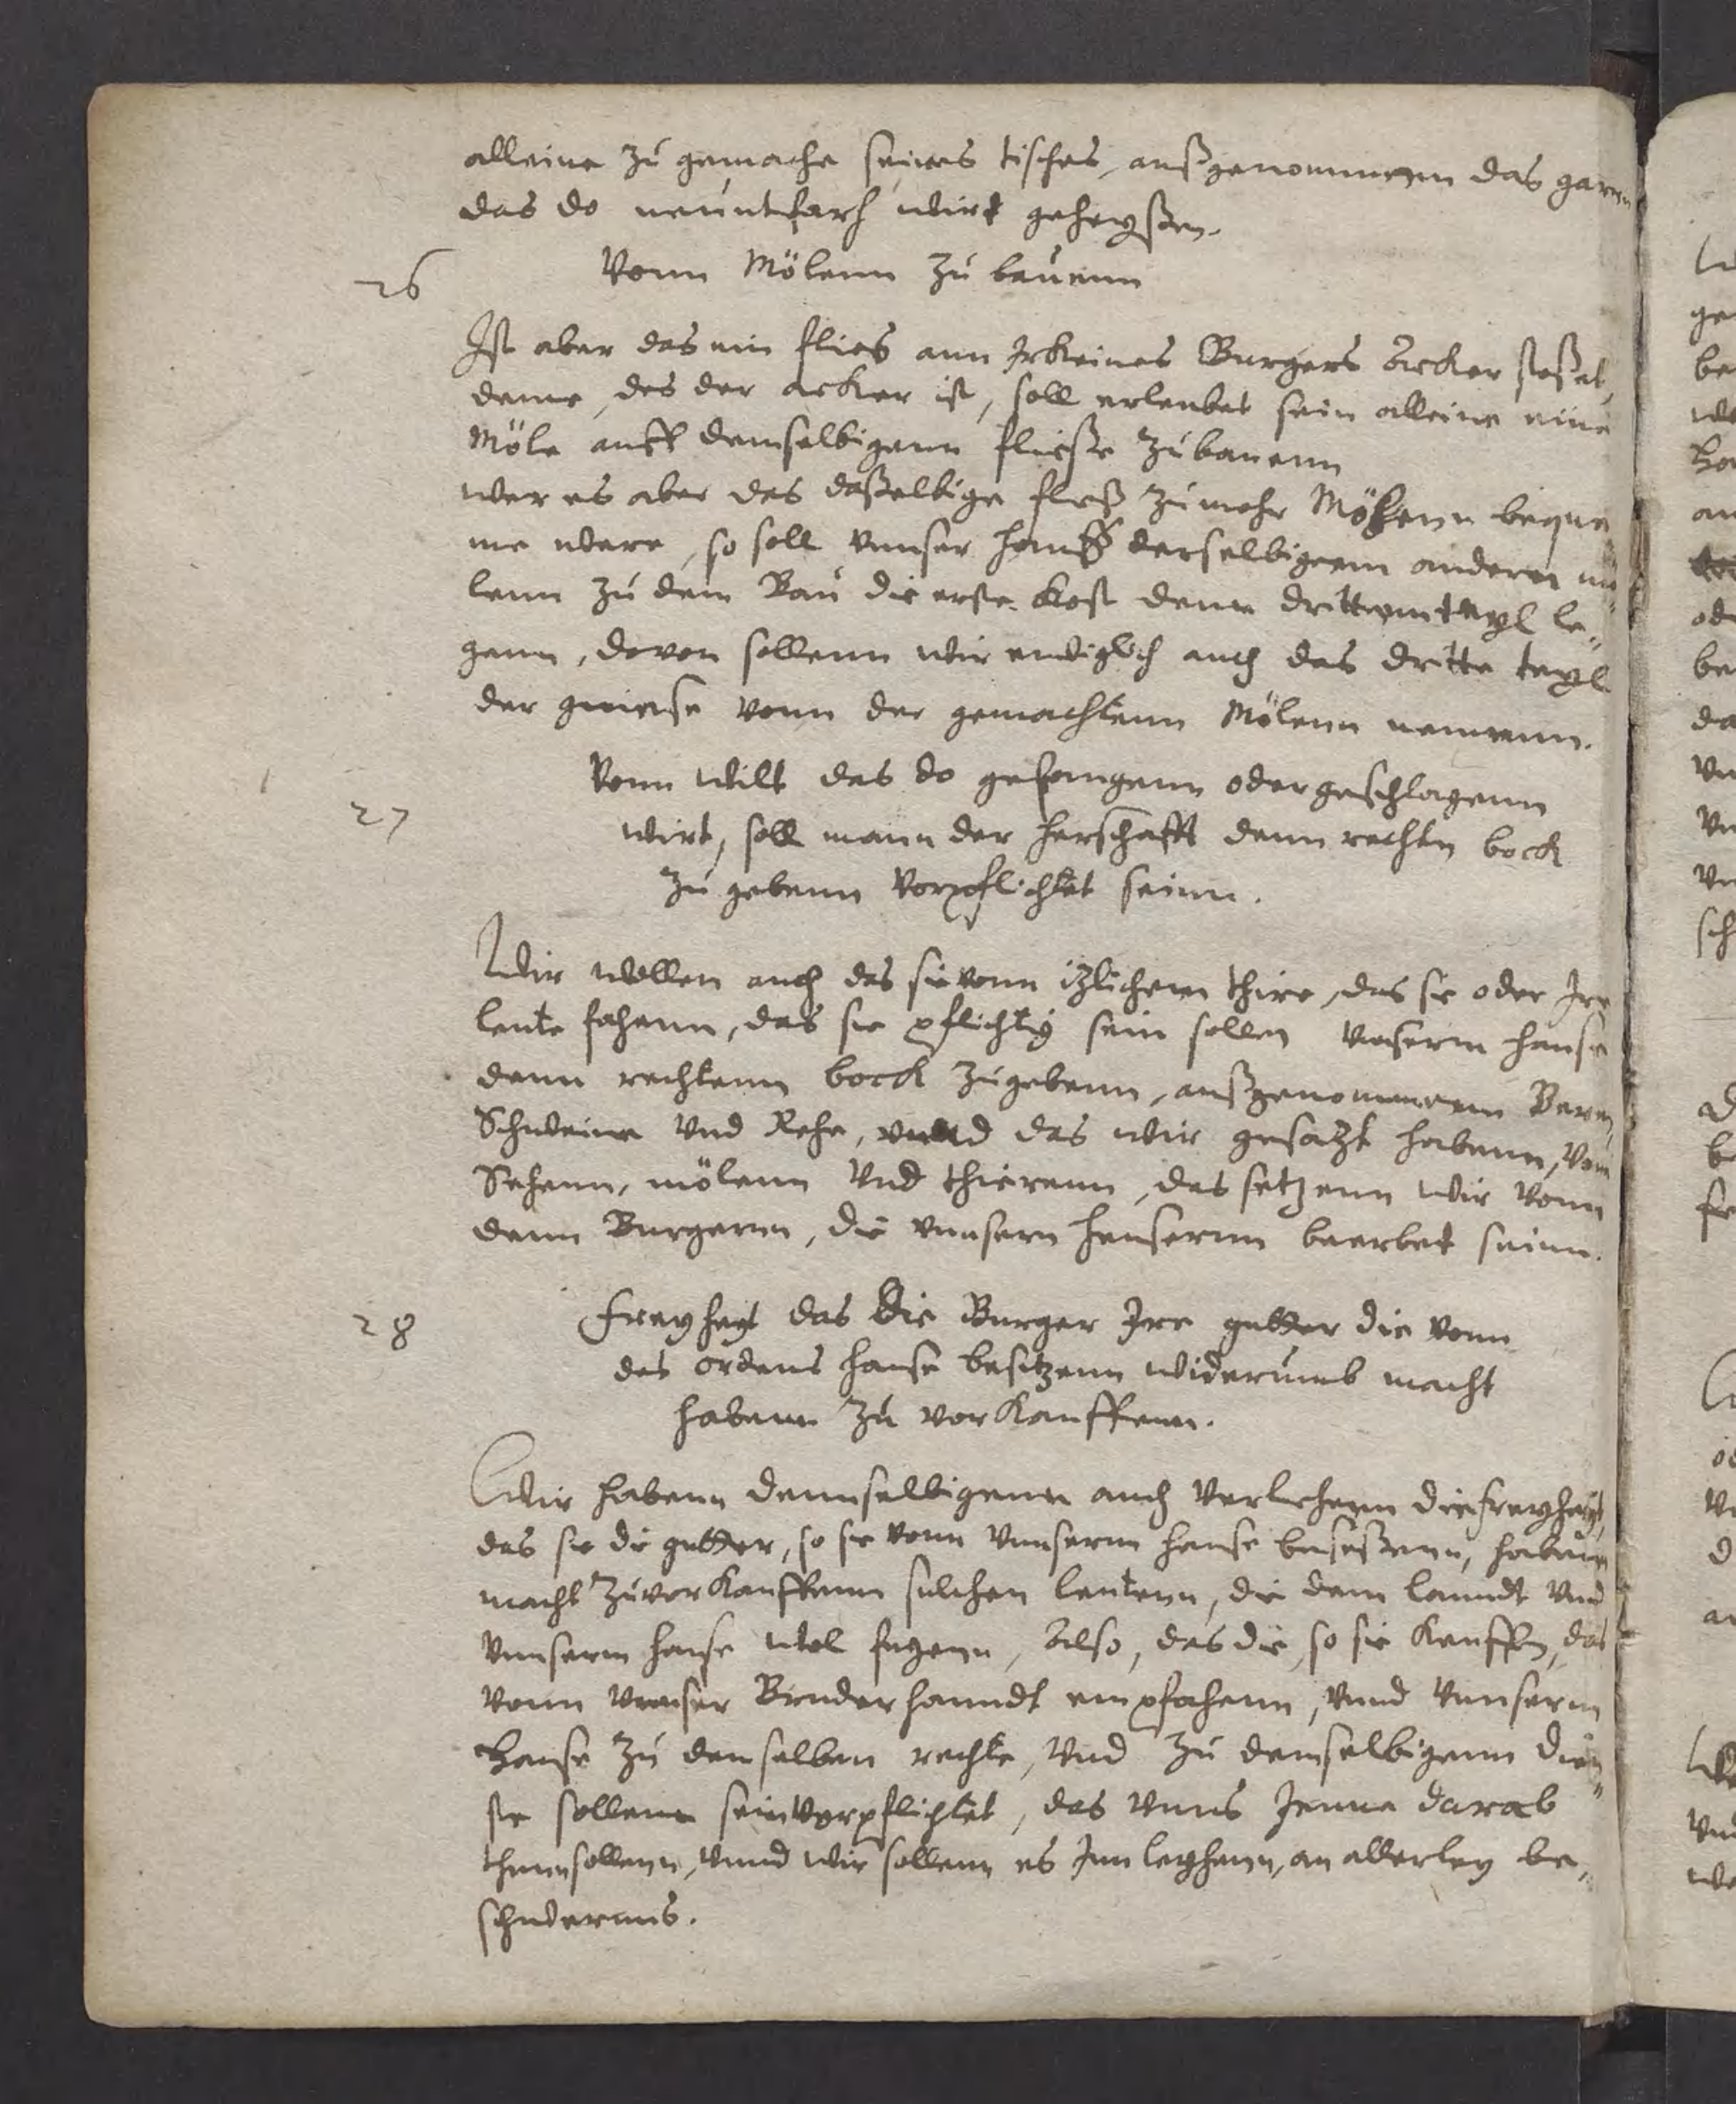 alleine zu gemache seines tisches, außgenommenn das garnn
das do neuntfach wirt geheyßen.
26 Vonn Mölenn zu bauenn
Ist aber das ein flies ann Irkeines Burgers Acker stoßet,
deme, des der acker ist, soll erleubet sein alleine eine
Möle auff demselbigenn fließe zubauenn
wer es aber das daßelbige fließ zu mehr Mölenn beque
me were, so soll vnnser hauß derselbigenn anderen mö
lenn zu dem Bau die erste kost denn dritten teyl le¬
genn, davon sollenn wir ewiglich auch das dritte teyl
der gniese vonn der gemachtenn Mölenn nemenn.
27 Vonn Wilt das do gefangenn oder geschlagenn
wirt, soll mann der herschafft denn rechten bock
zu gebenn vorpflichtet seinn.
Wir wollen auch das sie vonn itzlichem thire, das sie oder Ire
leute fahenn, das sie pflichtig sein sollen vnserm hause
denn rechtenn bock zugebenn, außgenommenn Beren,
Schweine vnd Rehe, vnnd das wir gesatzt habenn, von
Sehenn, mölenn vnd thierenn, das setzenn wir vonn
denn Burgernn, die vnnsern heusernn beerbet seinn.
28 Freyheyt das die Burger Ire gutter die vonn
des ordens hause besitzenn widerumb macht
habenn zu vorkauffenn.
Wir habenn dennselbigenn auch verliehenn die freyheyt,
das sie die gutter, so sie vonn vnnserm hause beseßenn, habenn
macht zuvorkauffenn sulchen leutenn, die dem lanndt vnd
vnnserm hause wol fugenn, Also, das die, so sie kauffen, das
vonn vnnser Bruder hanndt empfahenn, vnnd vnnserm
Hause zu demselben rechte, vnd zu demselbigenn dien¬
ste sollenn sein vorpflichtet, das vnns Jenne darab
thunn sollenn, vnnd wir sollenn es Inn leyhenn, an allerley be¬
schwernus.